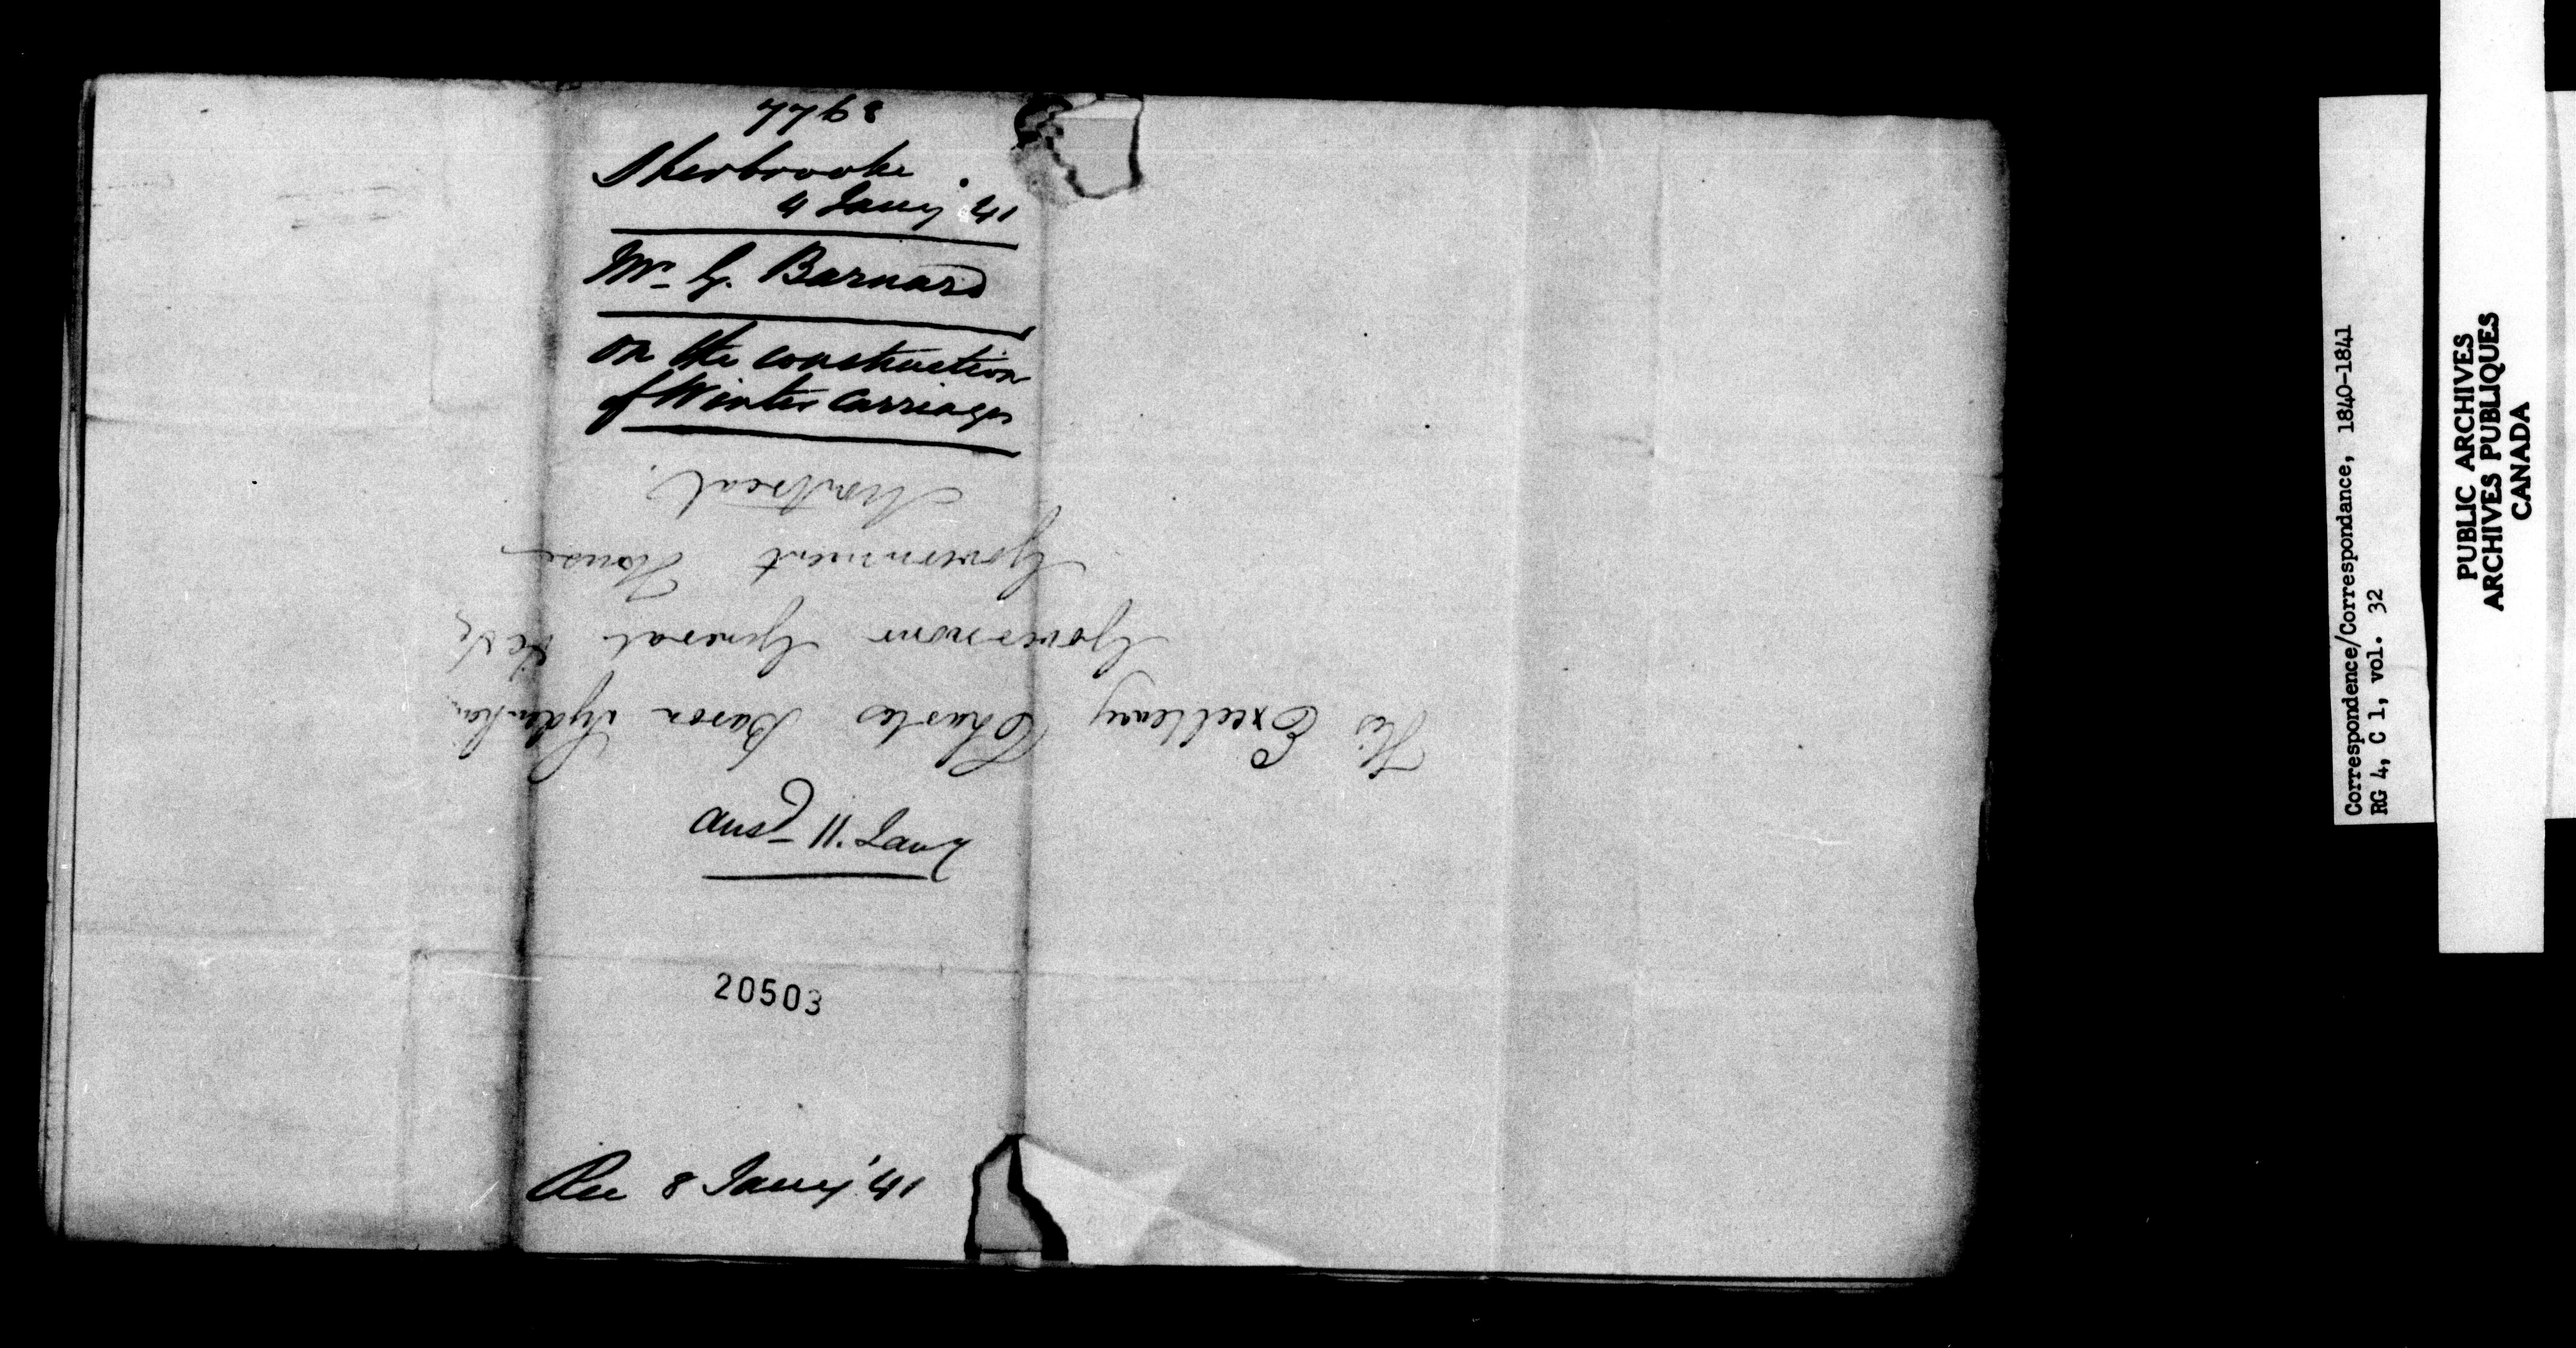 Sherbrooke
4 Jany '41
Mr G. Barnard
on the construction
of Winter Carriages
His Excellency Charles Baron Sydenham
Governour General &c &c
Government House
Montreal.
Ansd 11. Jany
20503
Rec 8 Jany '41
Correspondence/Correspondance, 1840-1841
RG 4, C 1, vol. 32
PUBLIC ARCHIVES
ARCHIVES PUBLIQUES
CANADA